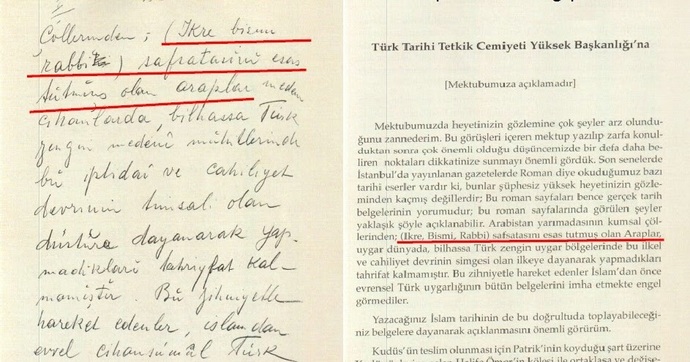 Çöllerinden; (Ikre bismi
rabbi) safsatasını esas
tutmuş olan araplar meden
cihanlarda, bilhassa Türk
zengin medenî muhitlerinde
bu iptidaî ve cahiliyet
devrinin timsali olan
düstûra dayanarak yap-
madıkları tahrifat kal-
mamıştır. Bu zihniyetle
hareket edenler, islamdan
evvel cihanşümûl Türk
Türk Tarihi Tetkik Cemiyeti Yüksek Başkanlığı'na
[Mektubumuza açıklamadır]
Mektubumuzda heyetinizin gözlemine çok şeyler arz olundu-
ğunu zannederim. Bu görüşleri içeren mektup yazılıp zarfa konul-
duktan sonra çok önemli olduğu düşüncemizde bir defa daha be-
liren noktaları dikkatinize sunmayı önemli gördük. Son senelerde
İstanbul'da yayınlanan gazetelerde Roman diye okuduğumuz bazı
tarihi eserler vardır ki, bunlar şüphesiz yüksek heyetinizin gözle-
minden kaçmış değillerdir; Bu roman sayfaları bence gerçek tarih
belgelerinin yorumudur; bu roman sayfalarında görülen şeyler
yaklaşık şöyle açıklanabilir. Arabistan yarımadasının kumsal çöl-
lerinden; (Ikre, Bismi, Rabbi) safsatasını esas tutmuş olan Araplar,
uygar dünyada, bilhassa Türk zengin uygar bölgelerinde bu ilkel
ve cahiliyet devrinin simgesi olan ilkeye dayanarak yapmadıkları
tahrifat kalmamıştır. Bu zihniyetle hareket edenler İslam'dan önce
evrensel Türk uygarlığının bütün belgelerini imha etmekte engel
görmediler.
Yazacağınız İslam tarihinin de bu doğrultuda toplayabileceği-
niz belgelere dayanarak açıklanmasını önemli görürüm.
Kudüs'ün teslim olunması için Patrik'in koyduğu şart üzerine